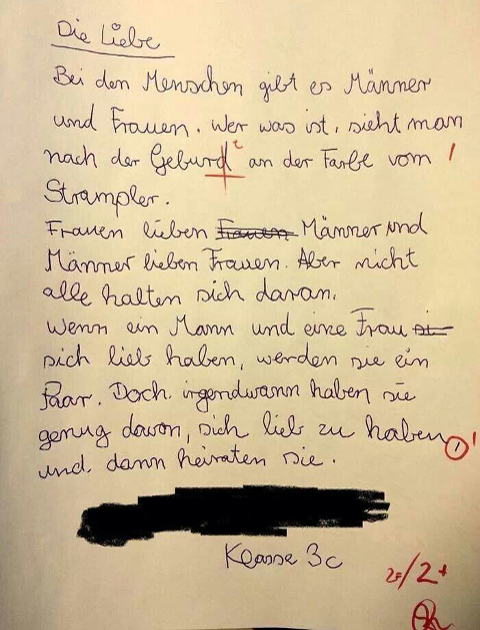 Die Liebe
Bei den Menschen gibt es Männer
und Frauen. Wer was ist, sieht man
nach der Geburd t an der Farbe vom
Strampler.
Frauen lieben Frauen Männer und
Männer lieben Frauen. Aber nicht
alle halten sich daran.
Wenn ein Mann und eine Frau
sich lieb haben, werden sie ein
Paar. Doch irgendwann haben sie
genug davon, sich lieb zu haben,
und dann heiraten sie.
Klasse 3c
2+